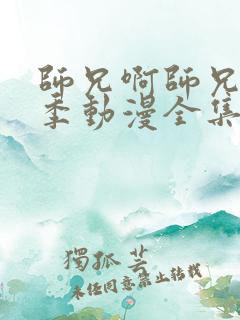 師兄啊師兄
季動漫全集
獨孤芸
未任同意禁止轉載